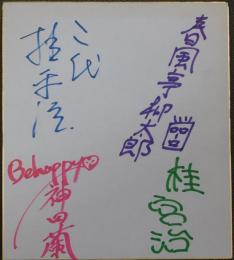 春風亭柳太郎
桂宮治
二代
Behappy♡
神田蘭